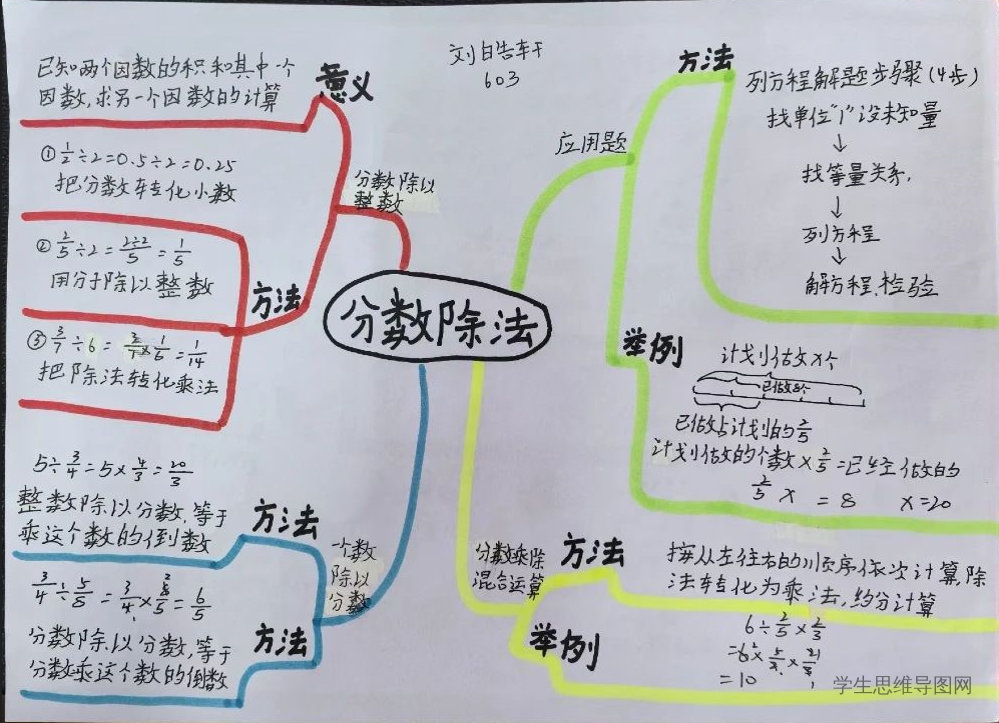 刘皓轩
603
分数除法
分数除以
整数
意义
已知两个因数的积和其中一个
因数,求另一个因数的计算
方法
①1/2÷2=0.5÷2=0.25
把分数转化小数
②2/5÷2=2÷2/5=1/5
用分子除以整数
③3/7÷6=3/7×1/6=1/14
把除法转化乘法
一个数
除以
分数
方法
5÷3/4=5×4/3=20/3
整数除以分数,等于
乘这个数的倒数
方法
3/4÷5/8=3/4×8/5=6/5
分数除以分数,等于
分数乘这个数的倒数
应用题
方法
列方程解题步骤(4步)
找单位"1"设未知量
↓
找等量关系,
↓
列方程
↓
解方程、检验
举例
计划做x个
已做8个
已做占计划的2/5
计划做的个数×2/5=已经做的
2/5x=8 x=20
分数乘除
混合运算
方法
按从左往右的顺序依次计算,除
法转化为乘法,约分计算
举例
6÷2/5×2/3
=6×5/2×2/3
=10
学生思维导图网